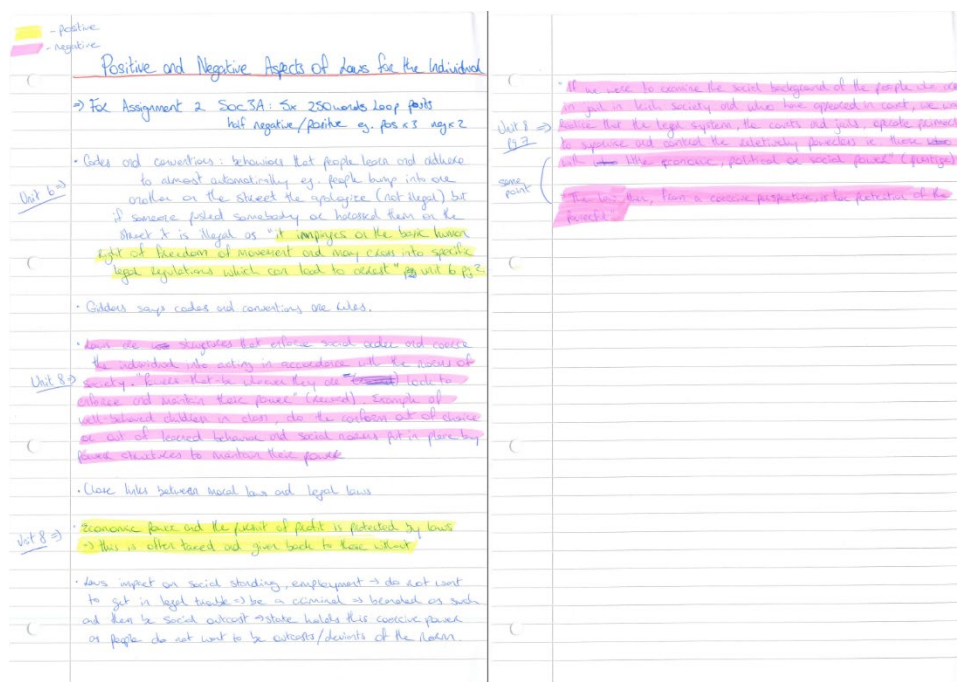 - positive
- negative
Positive and Negative Aspects of Laws for the Individual
=> For Assignment 2 Soc3A: 5x 250words Loop posts
half negative/positive eg. pos x3 neg x2
Unit 6 =>
• Codes and conventions: behaviours that people learn and adhere
to almost automatically eg. people bump into one
another on the street the apologize (not illegal) but
if someone pushed somebody or harassed them on the
street it is illegal as "it impinges on the basic human
right of freedom of movement and may cross into specific
legal regulations which can lead to arrest" unit 6 pg 2
• Giddens says codes and conventions are rules.
Unit 8 =>
• Laws are structures that enforce social order and coerce
the individual into acting in accordance with the norms of
society. "Powers that be whoever they are look to
enforce and maintain their power" (record). Example of
well-behaved children in class, do the conform out of choice
or out of learned behaviour and social norms put in place by
power structures to maintain their power
• Close links between moral laws and legal laws
Unit 8 =>
• Economic power and the pursuit of profit is protected by laws
-> this is often taxed and given back to those without
• Laws impact on social standing, employment -> do not want
to get in legal trouble -> be a criminal -> be as such
and then be social outcast -> state holds this coercive power
as people do not want to be outcasts/deviants of the norm.
Unit 8 =>
pg 7
• If we were to examine the social background of the people who are
put in society and who have appeared in court, we would
notice that the legal system, the courts and jails, operate primarily
to supervise and control the relatively powerless ie those
with little economic, political or social power" (prestige)
same
point
"The law then, from a coercive perspective is for protection of the
powerful"